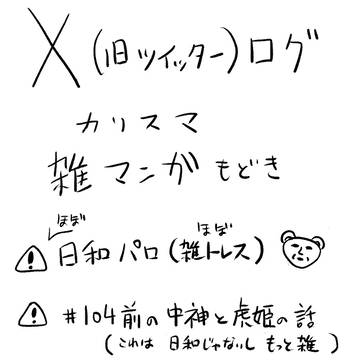 X(旧ツイッター)ログ
カリスマ
雑マンガもどき
ほぼ ほぼ
日和パロ(雑トレス)
#104前の中神と虎姫の話
(これは 日和じゃないし もっと雑)